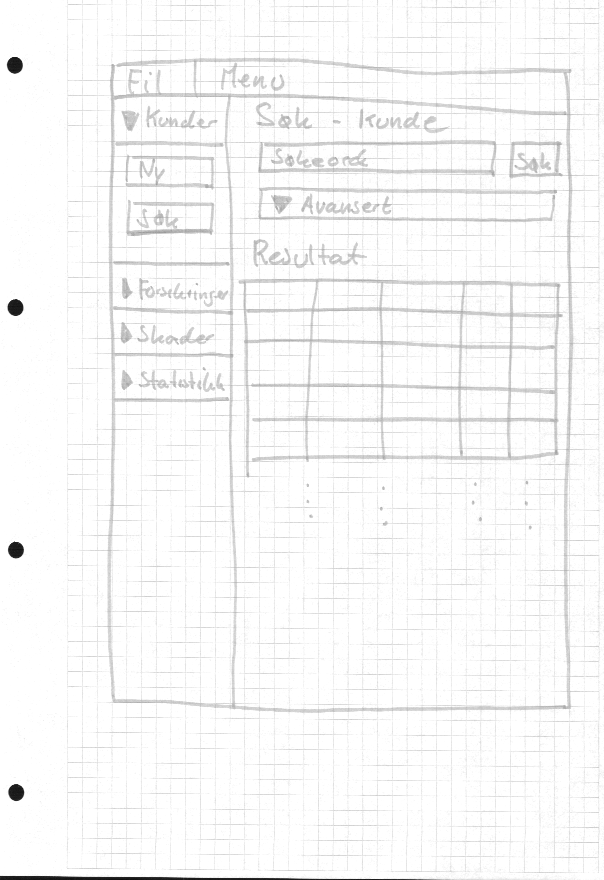 Fil Menu
Kunder
Ny
Søk
Forsikringer
Skader
Statistikk
Søk - Kunde
Søkeord Søk
Avansert
Resultat